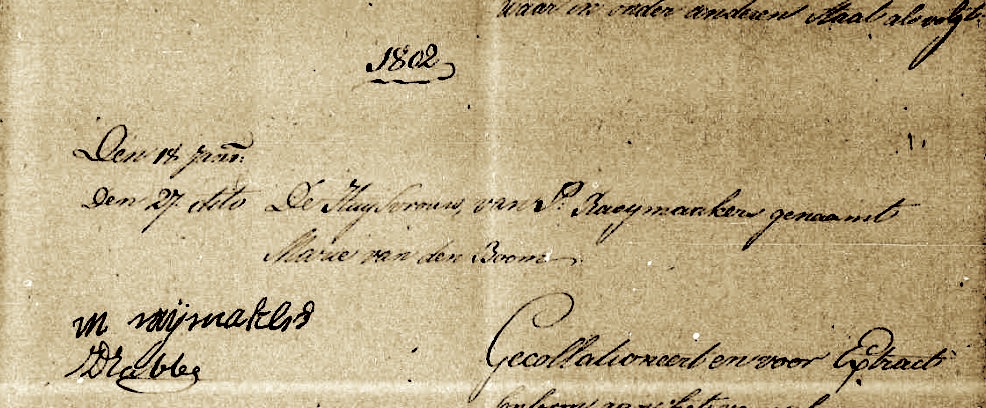 waar in onder anderen staat als volgt
1802
Den 18 Jan:
Den 27 dito De Huysvrouw, van P. Raeymaekers genaamt
Marie van den Boom
m raijmakers
Gecollationeert en voor Extract